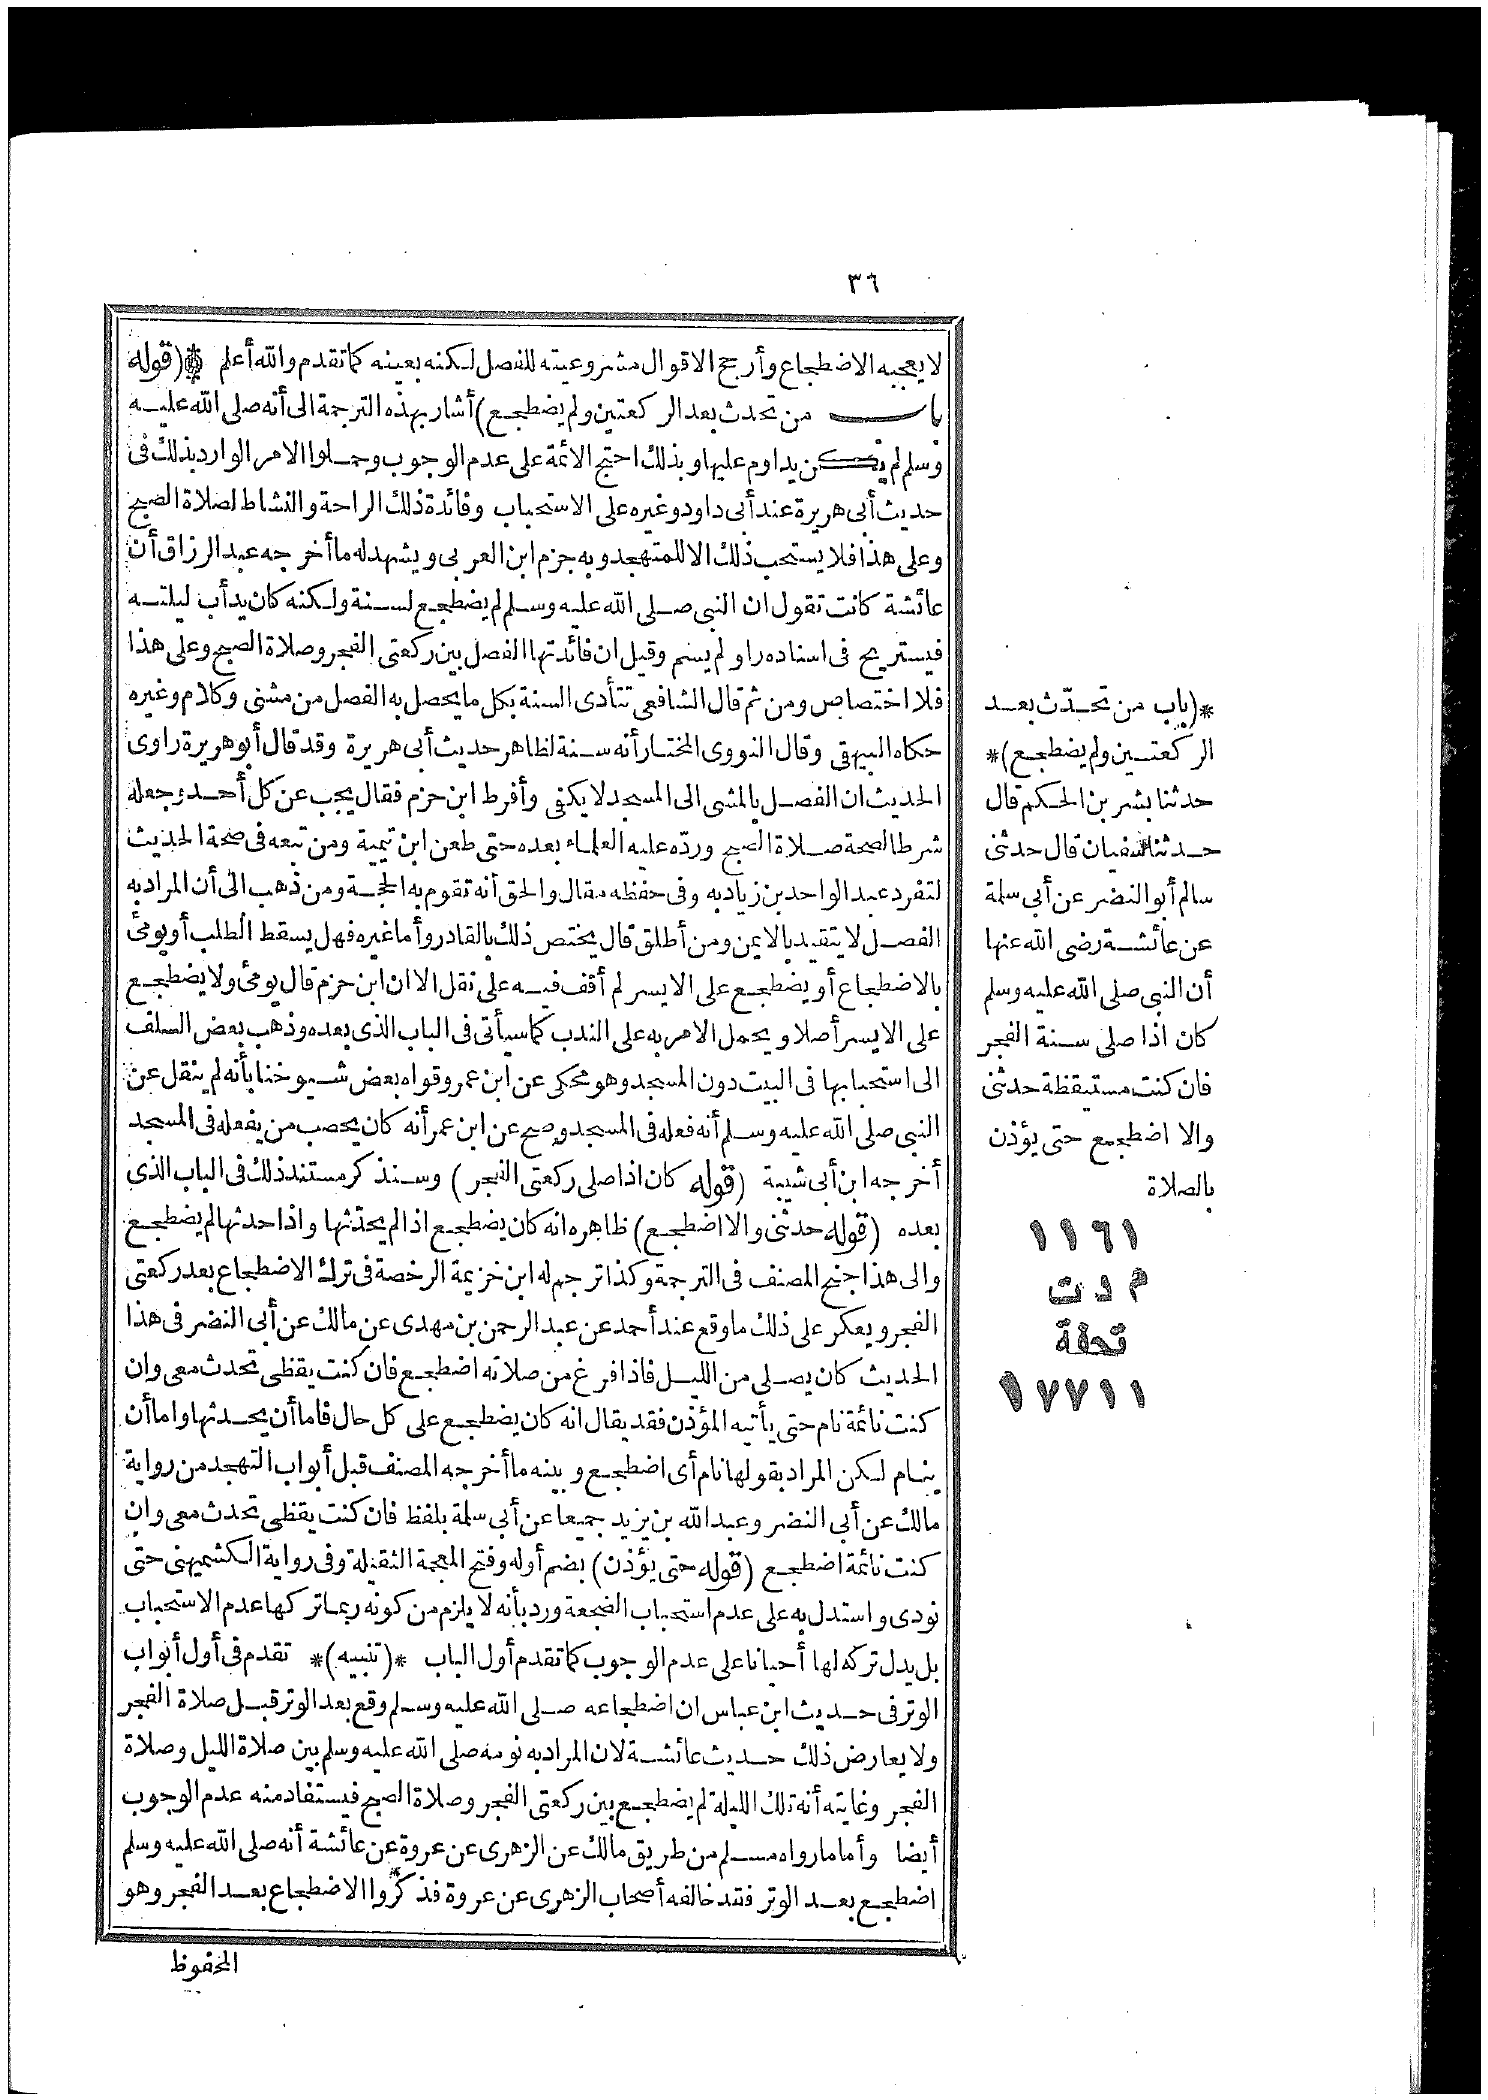 ٣٦
لا يعجبه الاضطجاع وأرجح الاقوال مشروعيته للفصل لكنه بعينه كما تقدم والله أعلم * (قوله
باب من تحدث بعد الركعتين ولم يضطجع) أشار بهذه الترجمة الى أنه صلى الله عليه
وسلم لم يكن يداوم عليها وبذلك احتج الائمة على عدم الوجوب وحملوا الامر الوارد بذلك فى
حديث أبى هريرة عند أبى داود وغيره على الاستحباب وفائدة ذلك الراحة والنشاط لصلاة الصبح
وعلى هذا فلا يستحب ذلك الا للمتهجد وبه جزم ابن العربى ويشهد له ما أخرجه عبد الرزاق أن
عائشة كانت تقول ان النبى صلى الله عليه وسلم لم يضطجع لسنة ولكنه كان يدأب ليلته
فيستريح فى اسناده راو لم يسم وقيل ان فائدتها الفصل بين ركعتى الفجر وصلاة الصبح وعلى هذا
فلا اختصاص ومن ثم قال الشافعى تتأدى السنة بكل ما يحصل به الفصل من مشى وكلام وغيره
حكاه البيهقى وقال النووى المختار أنه سنة لظاهر حديث أبى هريرة وقد قال أبو هريرة راوى
الحديث ان الفصل بالمشى الى المسجد لا يكفى وأفرط ابن حزم فقال يجب عن كل أحد وجعله
شرطا لصحة صلاة الصبح ورده عليه العلماء بعده حتى طعن ابن تيمية ومن تبعه فى صحة الحديث
لتفرد عبد الواحد بن زياد به وفى حفظه مقال والحق أنه تقوم به الحجة ومن ذهب الى أن المراد به
الفصل لا يتقيد بالايمن ومن أطلق قال يختص ذلك بالقادر وأما غيره فهل يسقط الطلب أو يومئ
بالاضطجاع أو يضطجع على الايسر لم أقف فيه على نقل الا ان ابن حزم قال يومئ ولا يضطجع
على الايسر أصلا ويحمل الامر به على الندب كما سيأتى فى الباب الذى بعده وذهب بعض السلف
الى استحبابها فى البيت دون المسجد وهو محكى عن ابن عمر وقواه بعض شيوخنا بأنه لم ينقل عن
النبى صلى الله عليه وسلم أنه فعله فى المسجد وصح عن ابن عمر أنه كان يحصب من يفعله فى المسجد
أخرجه ابن أبى شيبة (قوله كان اذا صلى ركعتى الفجر) وسنذكر مستند ذلك فى الباب الذى
بعده (قوله حدثنى والا اضطجع) ظاهره انه كان يضطجع اذا لم يحدثها واذا حدثها لم يضطجع
والى هذا جنح المصنف فى الترجمة وكذا ترجم له ابن خزيمة الرخصة فى ترك الاضطجاع بعد ركعتى
الفجر ويعكر على ذلك ما وقع عند أحمد عن عبد الرحمن بن مهدى عن مالك عن أبى النضر فى هذا
الحديث كان يصلى من الليل فاذا فرغ من صلاته اضطجع فان كنت يقظى تحدث معى وان
كنت نائمة نام حتى يأتيه المؤذن فقد يقال انه كان يضطجع على كل حال فاما أن يحدثها واما أن
ينام لكن المراد بقولها نام أى اضطجع وبينه ما أخرجه المصنف قبل أبواب التهجد من رواية
مالك عن أبى النضر وعبد الله بن يزيد جميعا عن أبى سلمة بلفظ فان كنت يقظى تحدث معى وان
كنت نائمة اضطجع (قوله حتى يؤذن) بضم أوله وفتح المعجمة الثقيلة وفى رواية الكشميهنى حتى
نودى واستدل به على عدم استحباب الضجعة ورد بأنه لا يلزم من كونه ربما تركها عدم الاستحباب
بل يدل تركه لها أحيانا على عدم الوجوب كما تقدم أول الباب *(تنبيه)* تقدم فى أول أبواب
الوتر فى حديث ابن عباس ان اضطجاعه صلى الله عليه وسلم وقع بعد الوتر قبل صلاة الفجر
ولا يعارض ذلك حديث عائشة لان المراد به نومه صلى الله عليه وسلم بين صلاة الليل وصلاة
الفجر وغايته أنه تلك الليلة لم يضطجع بين ركعتى الفجر وصلاة الصبح فيستفاد منه عدم الوجوب
أيضا وأما ما رواه مسلم من طريق مالك عن الزهرى عن عروة عن عائشة أنه صلى الله عليه وسلم
اضطجع بعد الوتر فقد خالفه أصحاب الزهرى عن عروة فذكروا الاضطجاع بعد الفجر وهو
المحفوظ
*(باب من تحدّث بعد
الركعتين ولم يضطجع)*
حدثنا بشر بن الحكم قال
حدثنا سفيان قال حدثنى
سالم أبو النضر عن أبى سلمة
عن عائشة رضى الله عنها
أن النبى صلى الله عليه وسلم
كان اذا صلى سنة الفجر
فان كنت مستيقظة حدثنى
والا اضطجع حتى يؤذن
بالصلاة
١١٦١
م د ت
تحفة
١٧٧١١